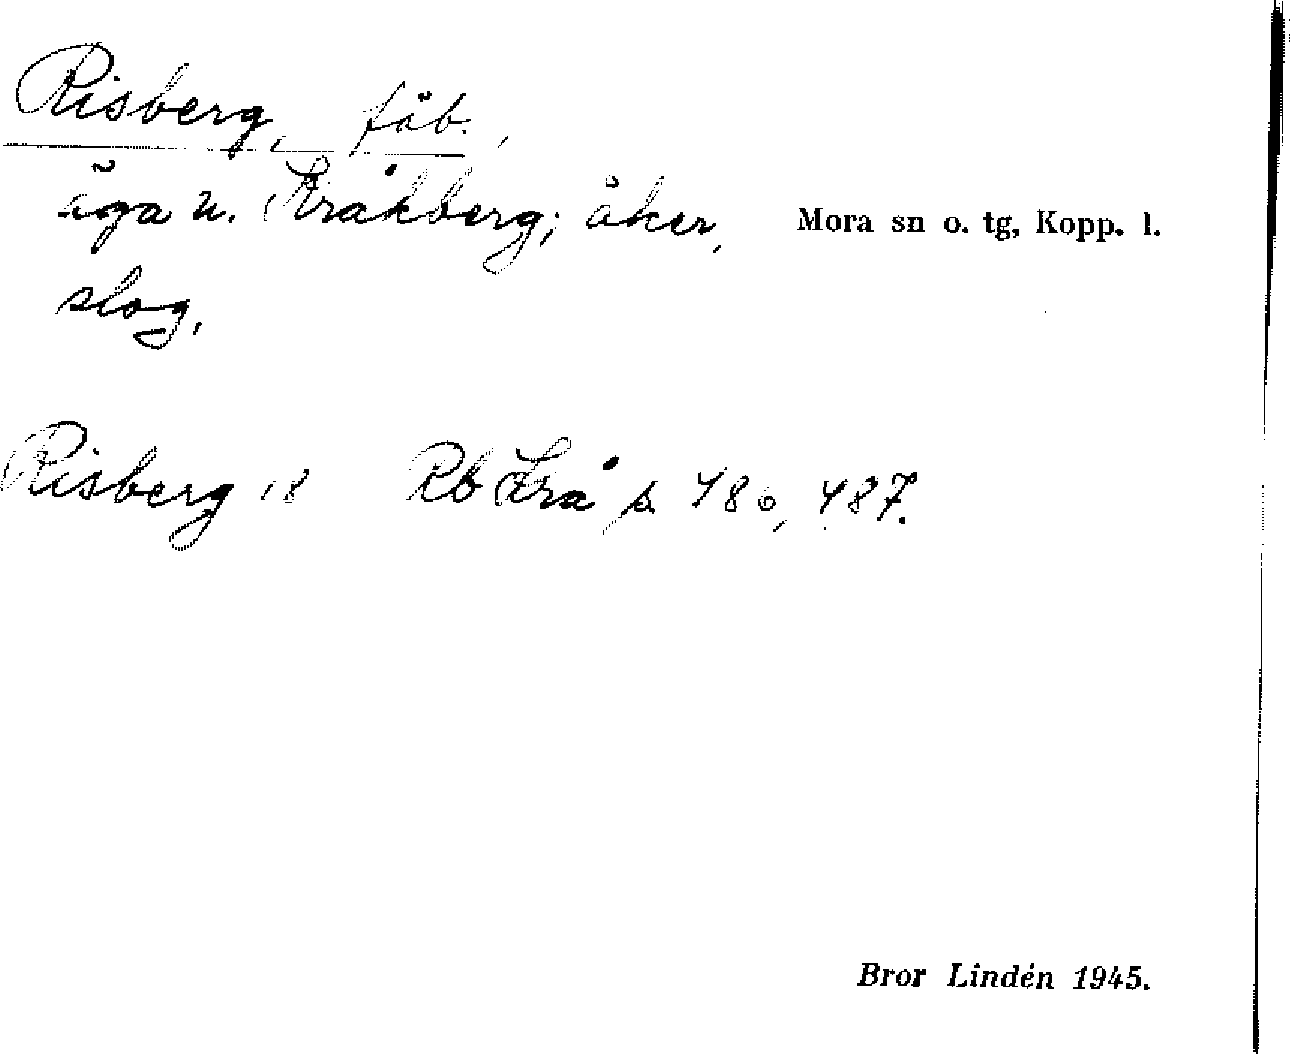 Risberg, fäb.,
äga u. Kråkberg; åker, Mora sn o. tg, Kopp. l.
slog,
Risberg 18 Rb Krå s. 480, 487.
Bror Lindén 1945.